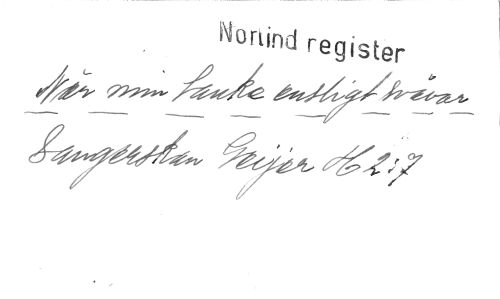 Norlind register
När min tanke ensligt svävar
Sångerskan Geijer H 2:7